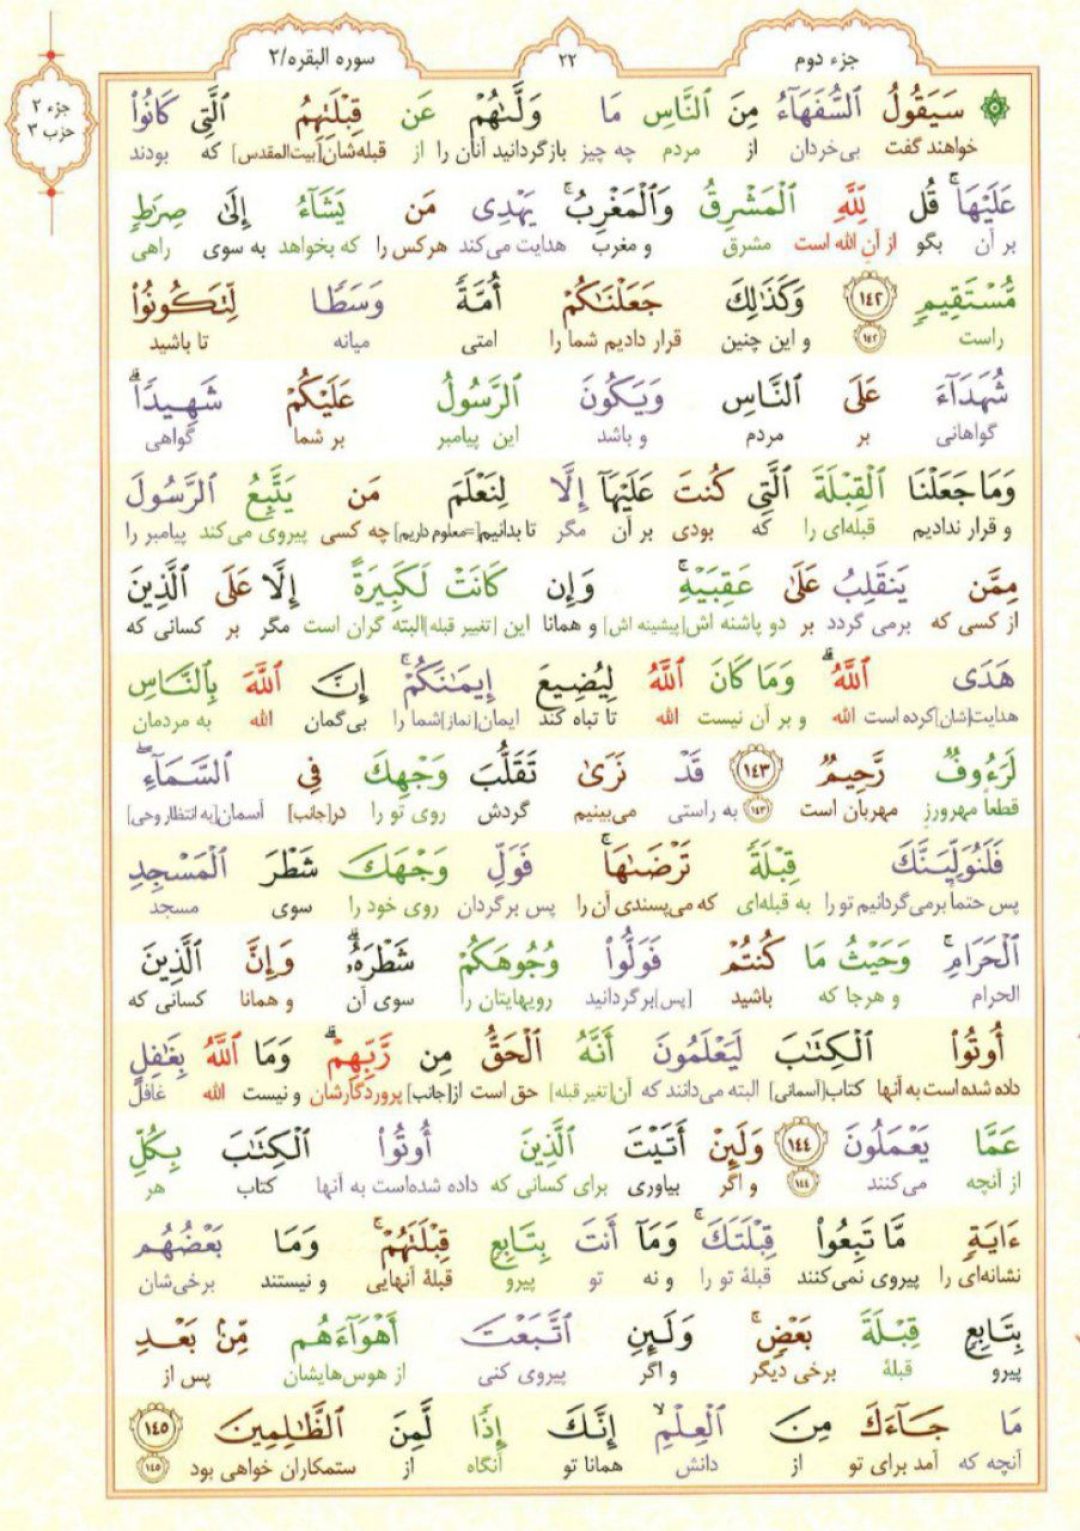 جزء دوم
٢٢
سوره البقره/٢
جزء ٢
حزب ٣
سَيَقُولُ ٱلسُّفَهَآءُ مِنَ ٱلنَّاسِ مَا وَلَّىٰهُمْ عَن قِبْلَتِهِمُ ٱلَّتِى كَانُوا۟
خواهند گفت بی‌خردان از مردم چه چیز بازگردانید آنان را از قبله‌شان[بیت‌المقدس] که بودند
عَلَيْهَا ۚ قُل لِّلَّهِ ٱلْمَشْرِقُ وَٱلْمَغْرِبُ ۚ يَهْدِى مَن يَشَآءُ إِلَىٰ صِرَٰطٍ
بر آن بگو از آنِ الله است مشرق و مغرب هدایت می‌کند هرکس را که بخواهد به سوی راهی
مُّسْتَقِيمٍ ١٤٢ وَكَذَٰلِكَ جَعَلْنَٰكُمْ أُمَّةً وَسَطًا لِّتَكُونُوا۟
راست ١٤٢ و این چنین قرار دادیم شما را امتی میانه تا باشید
شُهَدَآءَ عَلَى ٱلنَّاسِ وَيَكُونَ ٱلرَّسُولُ عَلَيْكُمْ شَهِيدًا ۗ
گواهانی بر مردم و باشد این پیامبر بر شما گواهی
وَمَا جَعَلْنَا ٱلْقِبْلَةَ ٱلَّتِى كُنتَ عَلَيْهَآ إِلَّا لِنَعْلَمَ مَن يَتَّبِعُ ٱلرَّسُولَ
و قرار ندادیم قبله‌ای را که بودی بر آن مگر تا بدانیم[=معلوم داریم] چه کسی پیروی می‌کند پیامبر را
مِمَّن يَنقَلِبُ عَلَىٰ عَقِبَيْهِ ۚ وَإِن كَانَتْ لَكَبِيرَةً إِلَّا عَلَى ٱلَّذِينَ
از کسی که برمی گردد بر دو پاشنه اش[پیشینه اش] و همانا این [تغییر قبله]البته گران است مگر بر کسانی که
هَدَى ٱللَّهُ ۗ وَمَا كَانَ ٱللَّهُ لِيُضِيعَ إِيمَٰنَكُمْ ۚ إِنَّ ٱللَّهَ بِٱلنَّاسِ
هدایت[شان]کرده است الله و بر آن نیست الله تا تباه کند ایمان[نماز]شما را بی‌گمان الله به مردمان
لَرَءُوفٌ رَّحِيمٌ ١٤٣ قَدْ نَرَىٰ تَقَلُّبَ وَجْهِكَ فِى ٱلسَّمَآءِ ۖ
قطعاً مهرورز مهربان است ١٤٣ به راستی می‌بینیم گردش روی تو را در[جانب] آسمان[به انتظار وحی]
فَلَنُوَلِّيَنَّكَ قِبْلَةً تَرْضَىٰهَا ۚ فَوَلِّ وَجْهَكَ شَطْرَ ٱلْمَسْجِدِ
پس حتماً برمی‌گردانیم تو را به قبله‌ای که می‌پسندی آن را پس برگردان روی خود را سوی مسجد
ٱلْحَرَامِ ۚ وَحَيْثُ مَا كُنتُمْ فَوَلُّوا۟ وُجُوهَكُمْ شَطْرَهُۥ ۗ وَإِنَّ ٱلَّذِينَ
الحرام و هرجا که باشید [پس]برگردانید رویهایتان را سوی آن و همانا کسانی که
أُوتُوا۟ ٱلْكِتَٰبَ لَيَعْلَمُونَ أَنَّهُ ٱلْحَقُّ مِن رَّبِّهِمْ ۗ وَمَا ٱللَّهُ بِغَٰفِلٍ
داده شده است به آنها کتاب[آسمانی] البته می‌دانند که آن[تغیر قبله] حق است از[جانب] پروردگارشان و نیست الله غافل
عَمَّا يَعْمَلُونَ ١٤٤ وَلَئِنْ أَتَيْتَ ٱلَّذِينَ أُوتُوا۟ ٱلْكِتَٰبَ بِكُلِّ
از آنچه می‌کنند ١٤٤ و اگر بیاوری برای کسانی که داده شده‌است به آنها کتاب هر
ءَايَةٍ مَّا تَبِعُوا۟ قِبْلَتَكَ ۚ وَمَآ أَنتَ بِتَابِعٍ قِبْلَتَهُمْ ۚ وَمَا بَعْضُهُم
نشانه‌ای را پیروی نمی‌کنند قبلهٔ تو را و نه تو پیرو قبلهٔ آنهایی و نیستند برخی‌شان
بِتَابِعٍ قِبْلَةَ بَعْضٍ ۚ وَلَئِنِ ٱتَّبَعْتَ أَهْوَآءَهُم مِّنۢ بَعْدِ
پیرو قبلهٔ برخی دیگر و اگر پیروی کنی از هوس‌هایشان پس از
مَا جَآءَكَ مِنَ ٱلْعِلْمِ ۙ إِنَّكَ إِذًا لَّمِنَ ٱلظَّٰلِمِينَ ١٤٥
آنچه که آمد برای تو از دانش همانا تو آنگاه از ستمکاران خواهی بود ١٤٥